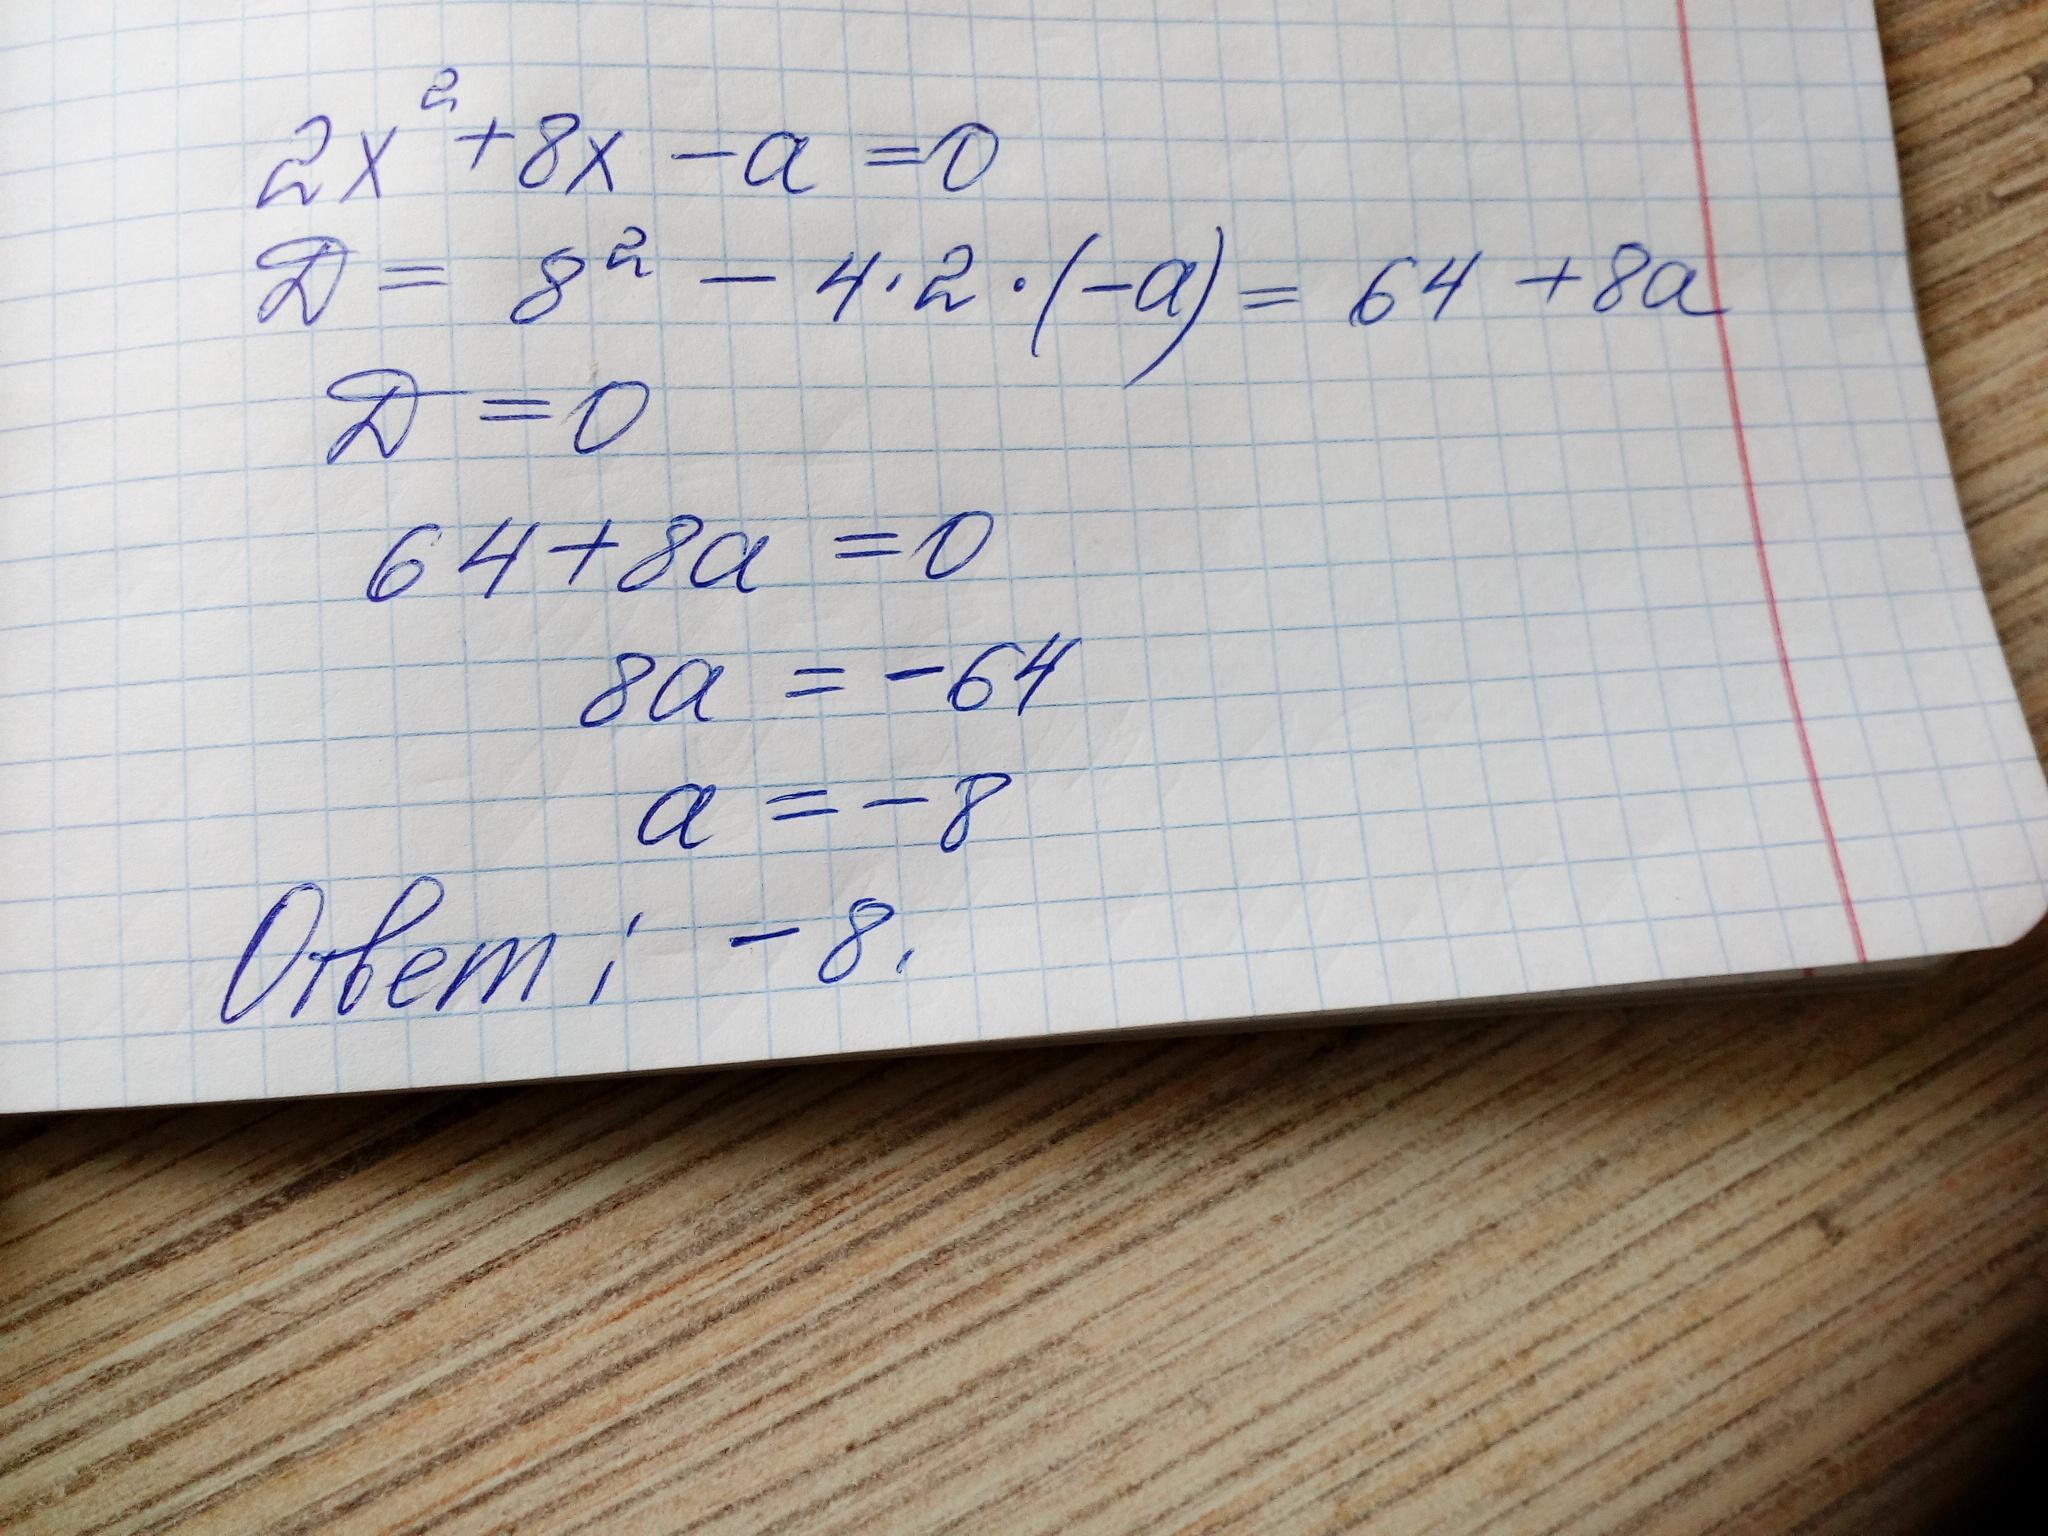 2x² + 8x - a = 0
D = 8² - 4·2·(-a) = 64 + 8a
D = 0
64 + 8a = 0
8a = -64
a = -8
Ответ: -8.